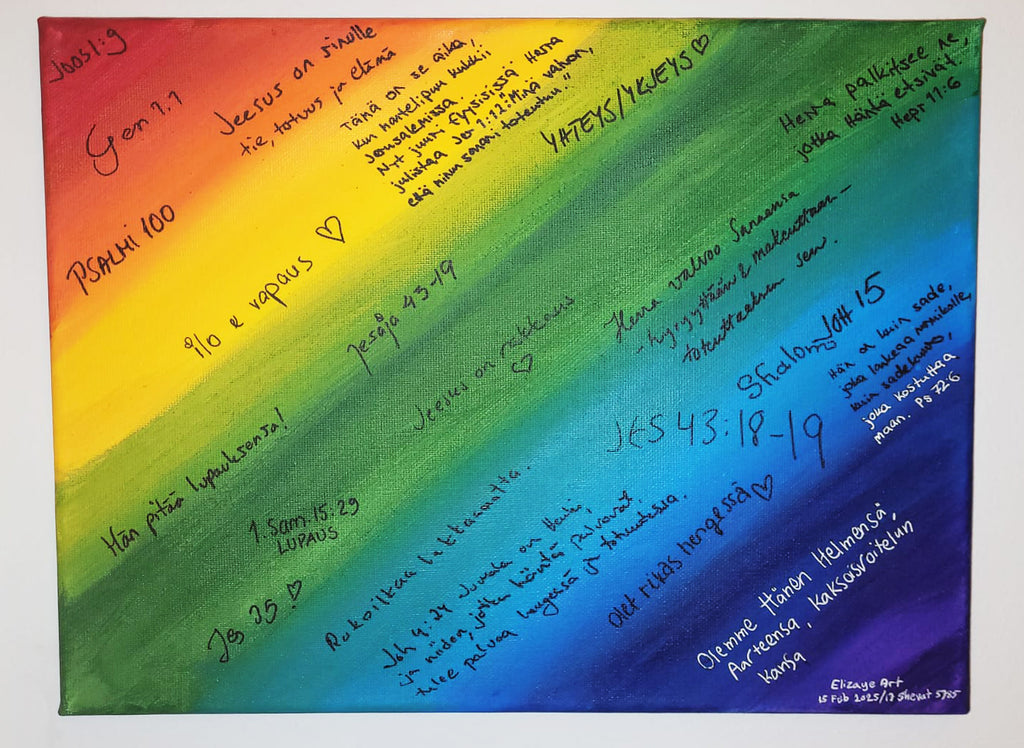 Joos1:9
Gen 1:1
Jeesus on sinulle
tie, totuus ja elämä
Tämä on se aika,
kun mantelipuu kukkii
Jerusalemissa.
Nyt juuri fyysisissä Herra
julistaa Jer 1:12: "Minä valvon,
että minun sanani toteutuu."
YHTEYS/YKSEYS ♡
Herra palkitsee ne,
jotka Häntä etsivät.
Hepr 11:6
PSALMI 100
ilo & vapaus ♡
Jesaja 43-19
Jeesus on rakkaus
♡
Herra valvoo Sanaansa
- hyrryttään & makuuttaan -
toteuttaaksen sen.
Shalom
JOH 15
Hän on kuin sade,
joka laskeaa nurmikolle,
kuin sadekuuro,
joka kostuttaa
maan. Ps 72:6
JES 43:18-19
Hän pitää lupauksensa!
1. Sam. 15:29
LUPAUS
Jes 35 ! ♡
Rukoilkaa lakkaamatta.
Joh 4:24 Jumala on Henki,
ja niiden, jotka häntä palvovat,
tulee palvoa hengessä ja totuudessa.
Olet rikas hengessä ♡
Olemme Hänen Helmensä
Aarteensa, kaksoisvoitelun
kansa
Elizaye Art
15 Feb 2025/17 Shevat 5785